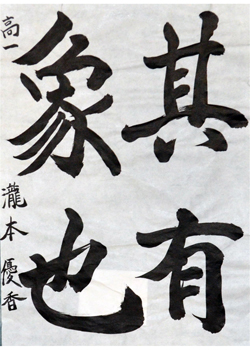 其有
象也
高一 瀧本優香